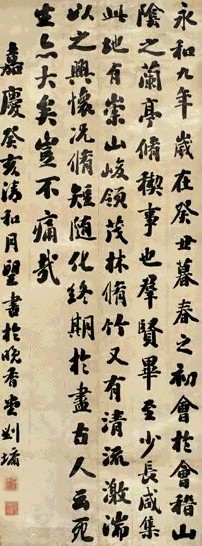 永和九年歲在癸丑暮春之初會於會稽山
陰之蘭亭脩稧事也羣賢畢至少長咸集
此地有崇山峻領茂林脩竹又有清流激湍
以之興懷况脩短随化終期於盡古人云死
生亦大矣豈不痛哉
嘉慶癸亥清和月望書於晚香堂劉墉